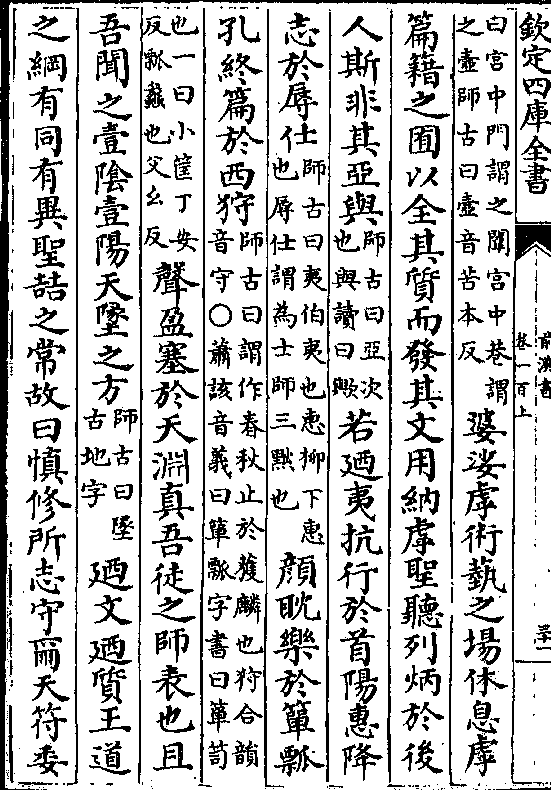 欽定四庫全書
前漢書
卷一百上
曰宮中門謂之闈宮中巷謂
之壼師古曰壼音苦本反
婆娑虖術藝之場休息虖
篇籍之囿以全其質而發其文用納虖聖聽列炳於後
人斯非其亞與
師古曰亞次
也與讀曰歟
若迺夷抗行於首陽惠降
志於辱仕
師古曰夷伯夷也惠柳下惠
也辱仕謂為士師三黜也
顔耽樂於簞瓢
孔終篇於西狩
師古曰謂作春秋止於獲麟也狩合韻
音守○蕭該音義曰簞瓢字書曰簞笥
也一曰小筐丁安
反瓢蠡也父幺反
聲盈塞於天淵真吾徒之師表也且
吾聞之壹陰壹陽天墬之方
師古曰墬
古地字
迺文迺質王道
之綱有同有異聖喆之常故曰慎修所志守爾天符委